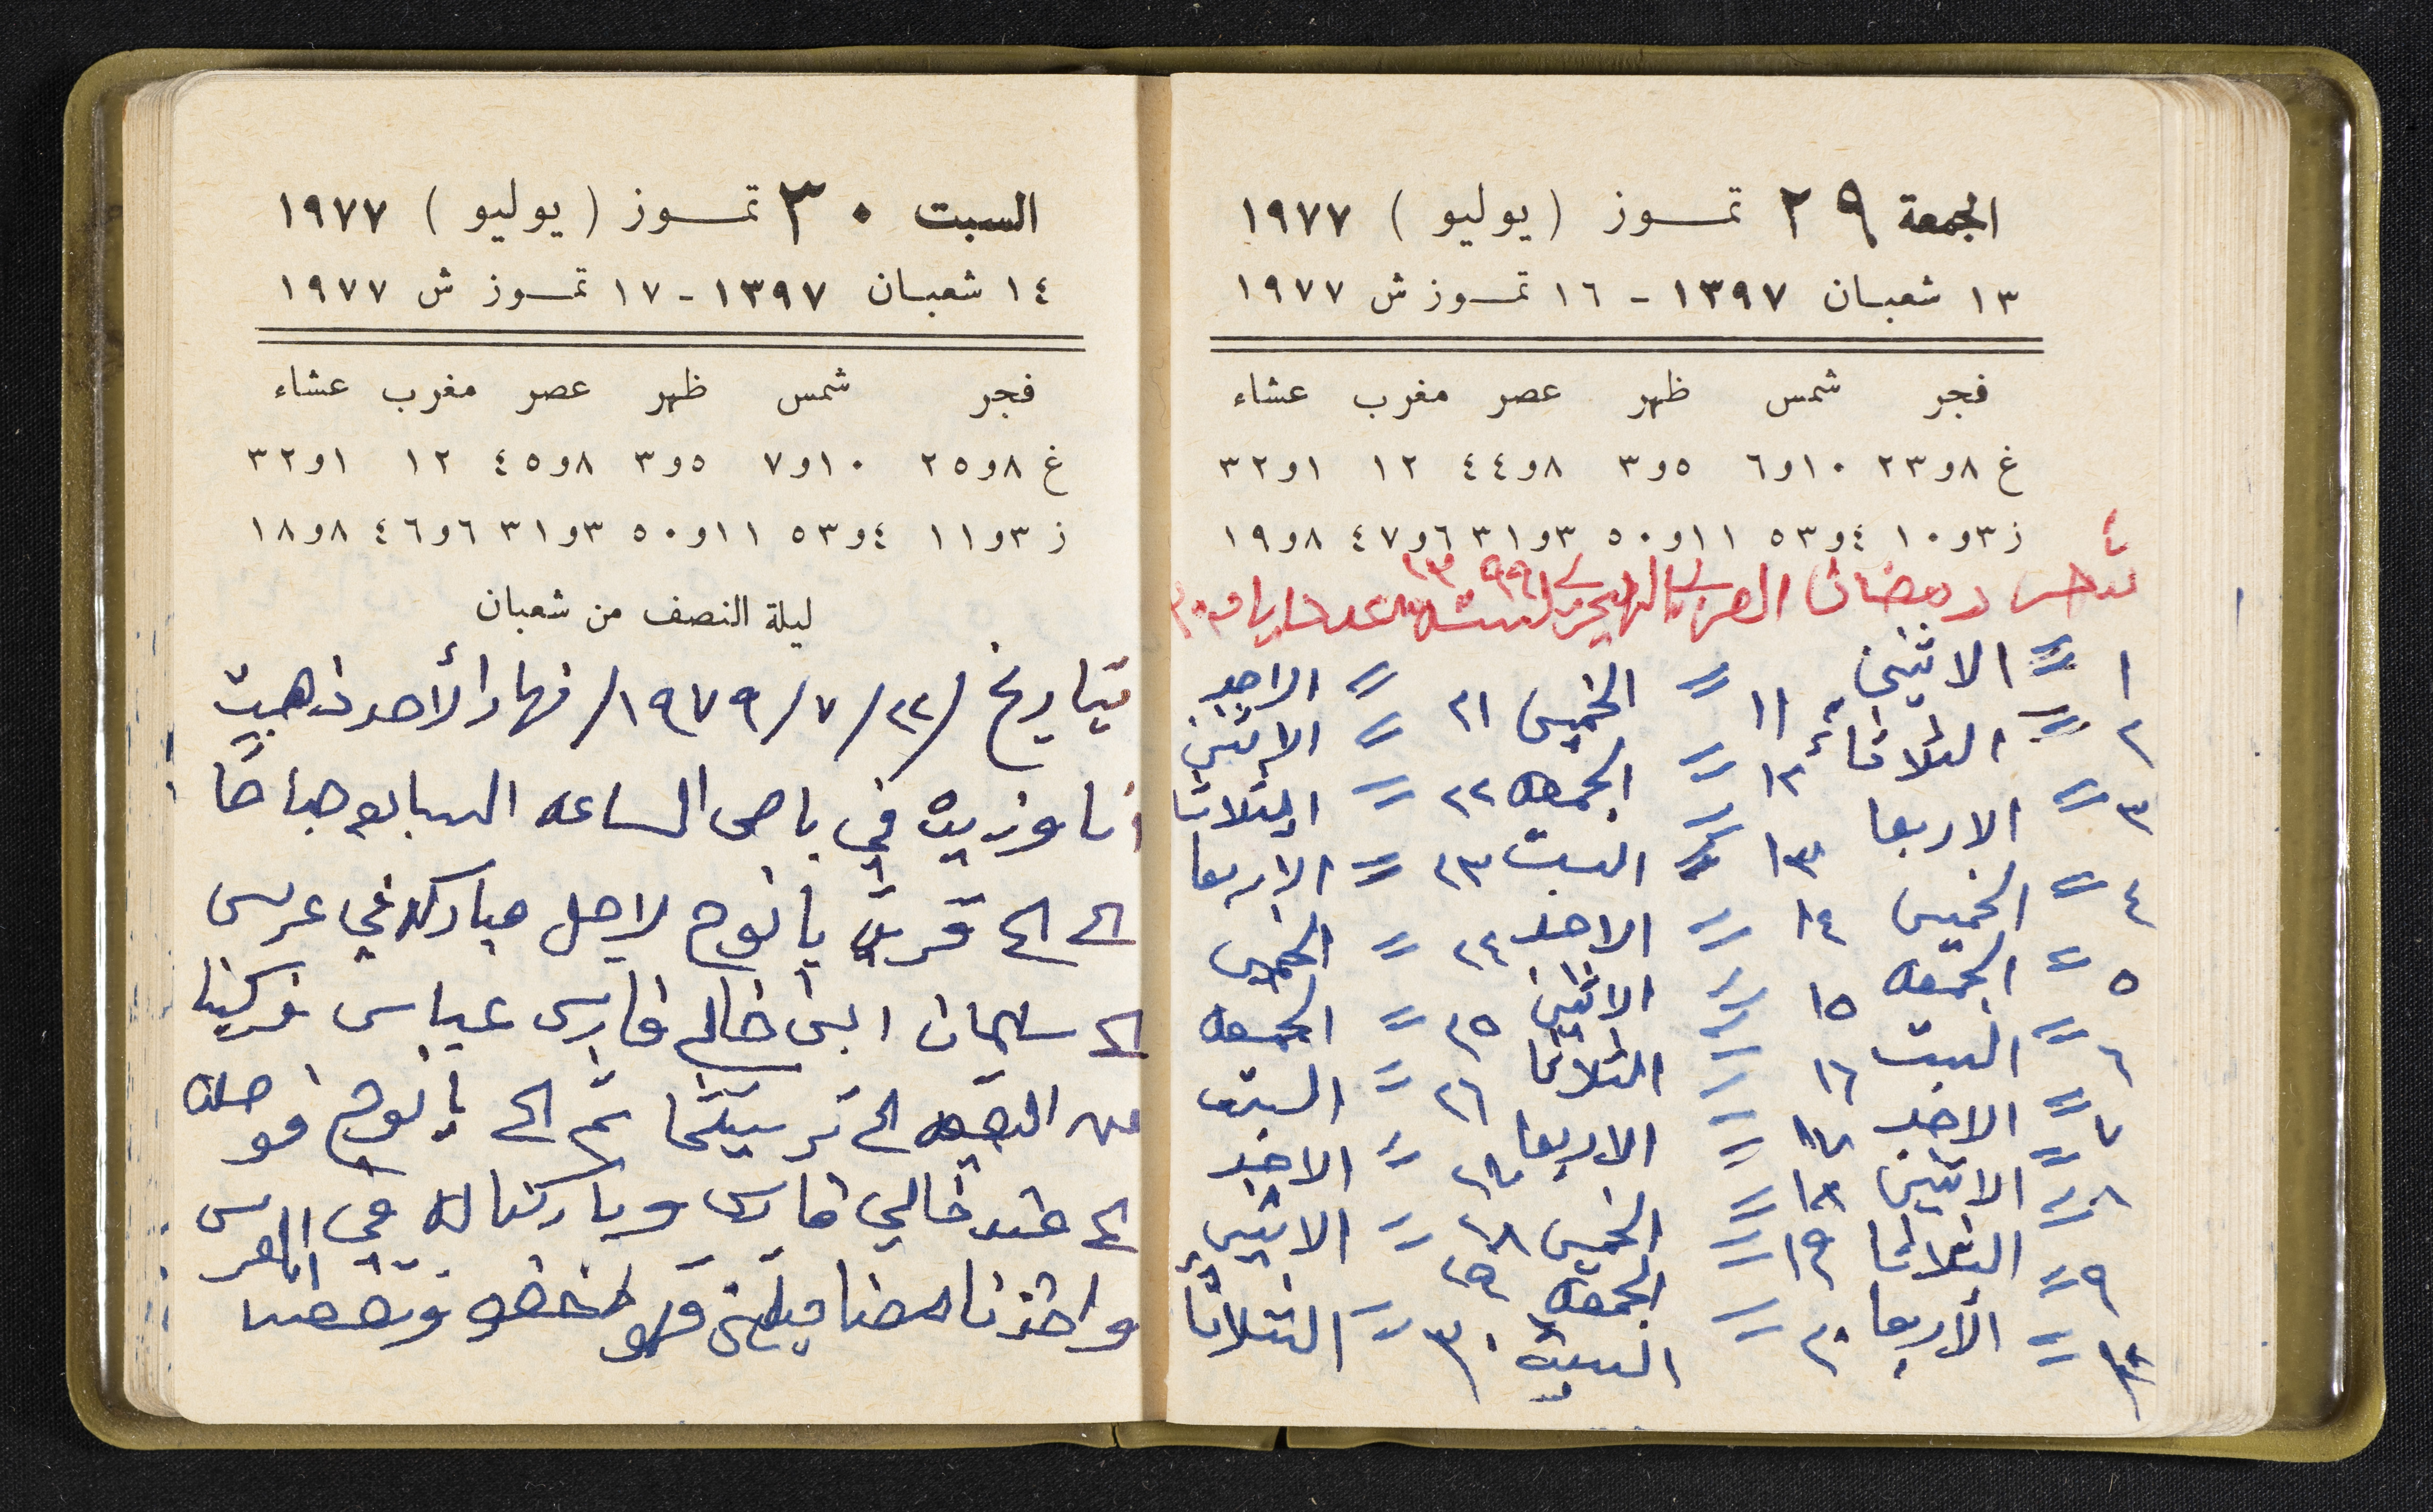 الجمعة ٢٩ تمــوز (يوليو) ١٩٧٧
١٣ شعبـان ١٣٩٧ - ١٦ تمــوز ش ١٩٧٧
فجر شمس ظهر عصر مغرب عشاء
غ ٨و٢٣ ١٠و٦ ٥و٣ ٨و٤٤ ١٢ ١و٣٢
ز ٣و١٠ ٤و٥٣ ١١و٥٠ ٣و٣١ ٦و٤٧ ٨و١٩
٤
رمضان العربي الهجري ١٣٩٩
١ = الاثنين ١١ = الخميس ٢١ = الاحد
٢ = الثلاثاء ١٢ = الجمعه ٢٢ = الاثنين
٣ = الاربعا ١٣ = السبت ٢٣ = الثلاثا
٤ = الخميس ١٤ = الاحد ٢٤ = الاربعا
٥ = الجمعه ١٥ = الاثنين ٢٥ = الخميس
٦ = السبت ١٦ = الثلاثا ٢٦ = الجمعه
٧ = الاحد ١٧ = الاربعا ٢٧ = السبت
٨ = الاثنين ١٨ = الخميس ٢٨ = الاحد
٩ = الثلاثا ١٩ = الجمعه ٢٩ = الاثنين
١٠ = الاربعا ٢٠ = السبت ٣٠ = الثلاثأ
السبت ٣٠ تمــوز (يوليو) ١٩٧٧
١٤ شعبـان ١٣٩٧ - ١٧ تمــوز ش ١٩٧٧
فجر شمس ظهر عصر مغرب عشاء
غ ٨و٢٥ ١٠و٧ ٥و٣ ٨و٤٥ ١٢ ١و٣٢
ز ٣و١١ ٤و٥٣ ١١و٥٠ ٣و٣١ ٦و٤٦ ٨و١٨
ليلة النصف من شعبان
بتاريخ /٢٢/٧/١٩٧٩/ نهار الأحد ذهبت
انا وزيه في باص الساعه السابعه صباحا
الى الى قرية يانوح لاجل مباركه في عرس
الى سليمان ابن خالي فارس عباس فركبنا
من البقيعه الى ترشيحا ثم الى يانوح فوصلنا
الى عند خالي فارس وباركنا له في العرس
واخذنا معنا